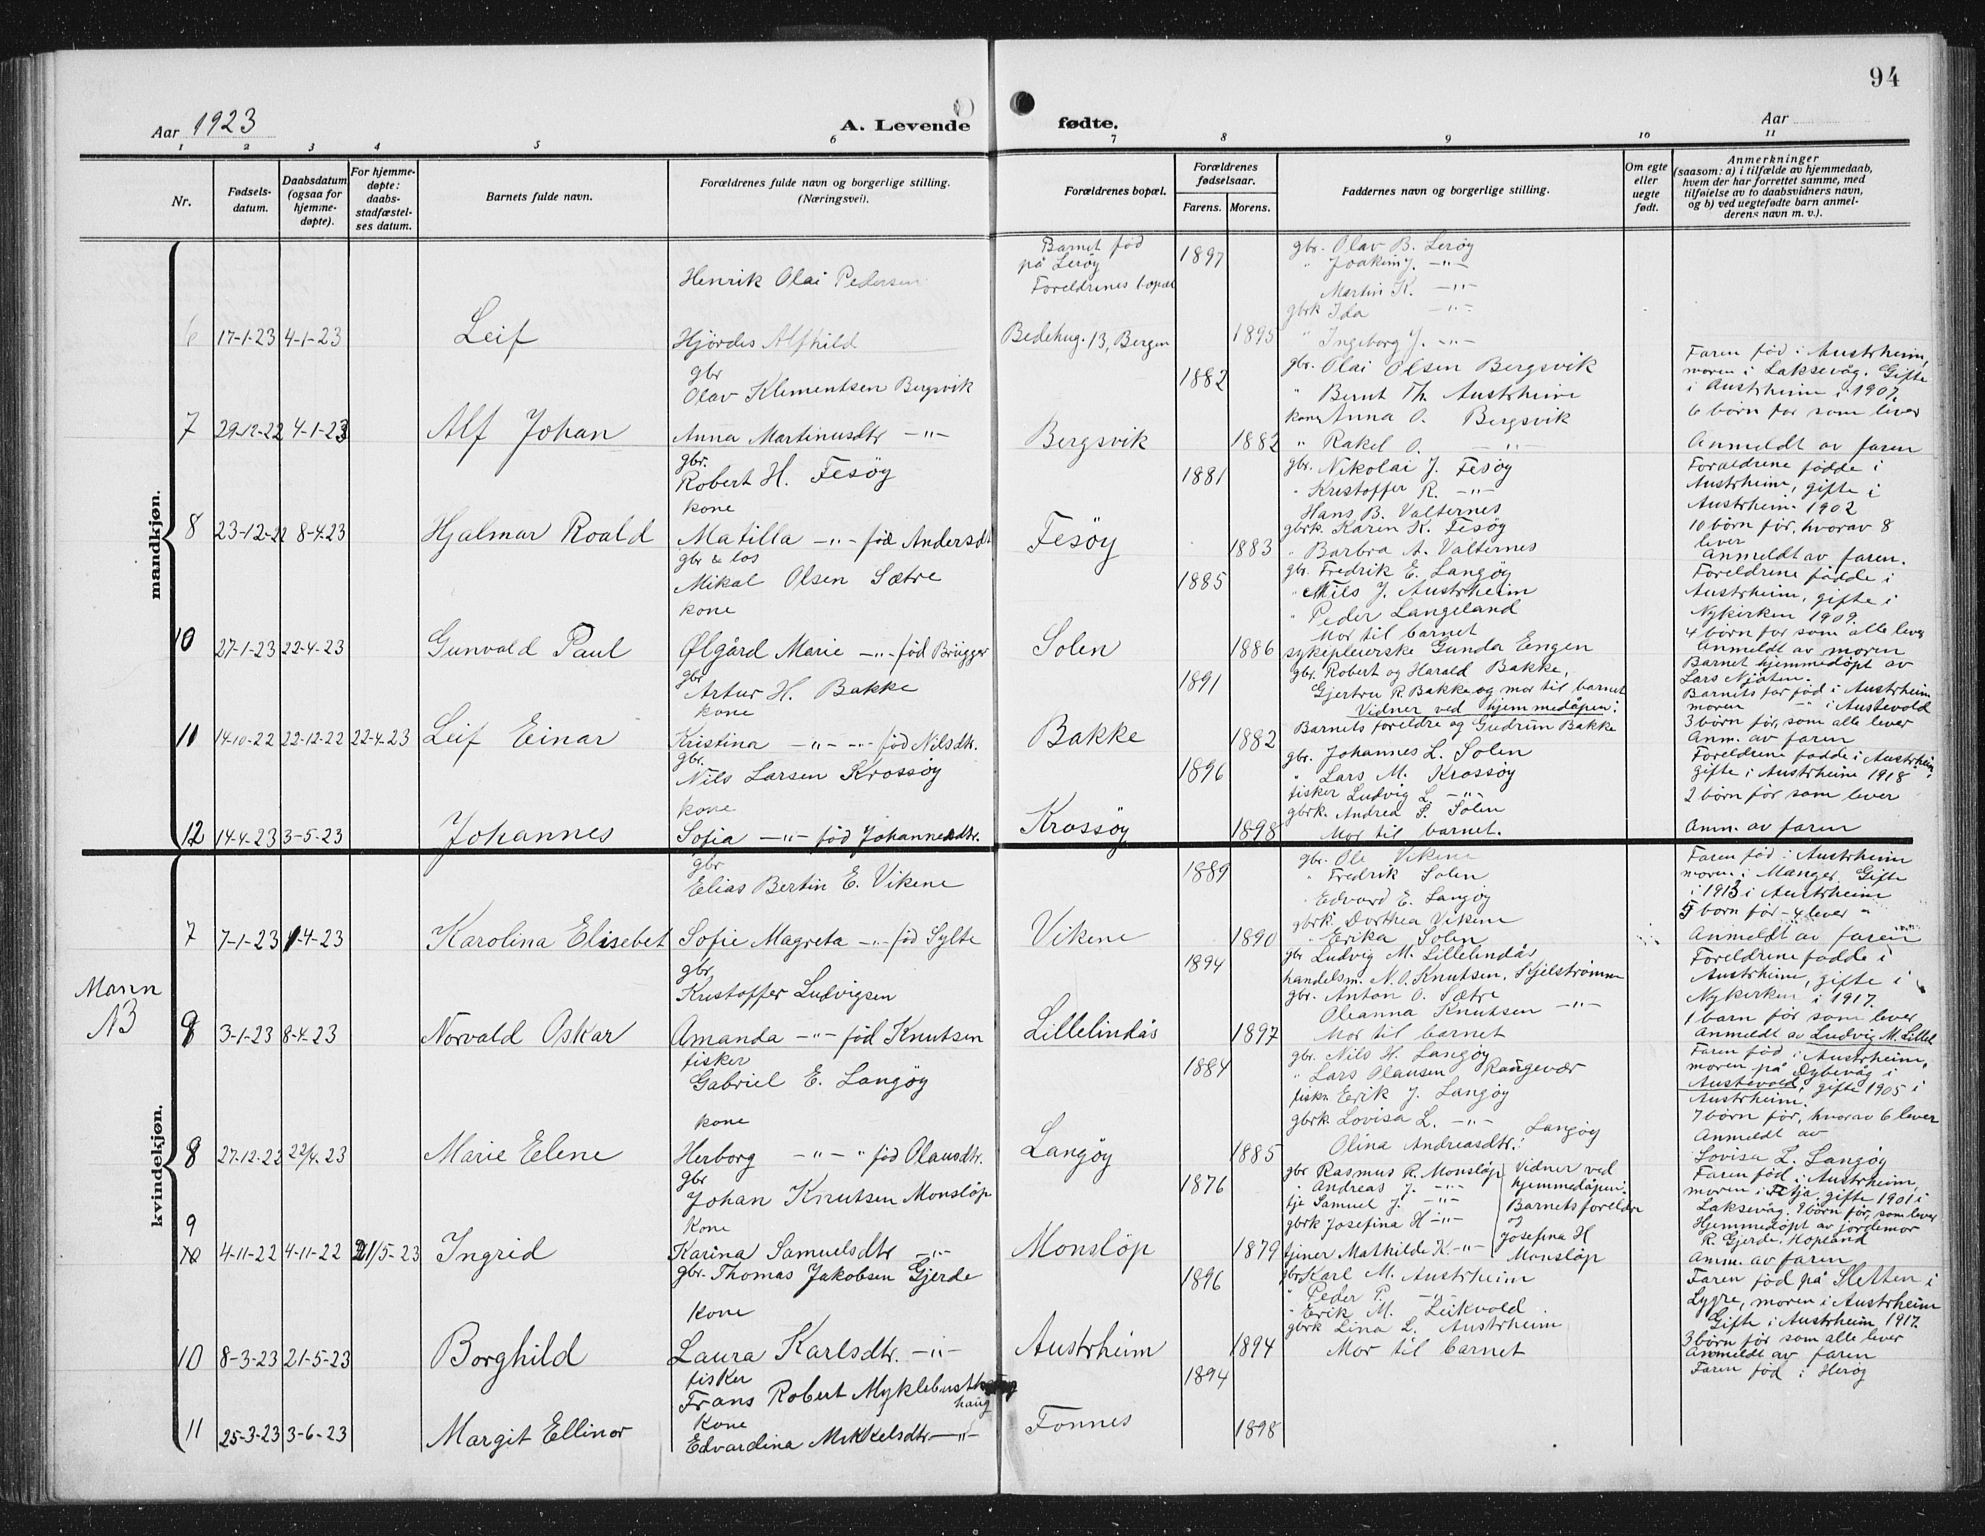 94
Aar 1923
A. Levende
fødte.
Aar
1 2 3 4 5 6 7 8 9 10 11
Nr.
Fødsels-
datum.
Daabsdatum
(ogsaa for
hjemme-
døpte).
For hjemme-
døpte:
daabs-
stadfæstel-
ses datum.
Barnets fulde navn.
Forældrenes fulde navn og borgerlige stilling.
(Næringsvei).
Forældrenes bopæl.
Forældrenes
fødselsaar.
Farens. Morens.
Faddernes navn og borgerlige stilling.
Om egte
eller
uegte
født.
Anmerkninger
(saasom: a) i tilfælde av hjemmedaab,
hvem der har forrettet samme, med
tilføielse av to daabsvidners navn,
og b) ved uegtefødte barn anmel-
derens navn m. v.).
mandkjøn.
6 17-1-23 4-1-23 Leif
Henrik Olai Pedersen
Hjördis Alfhild
Barnet född
på Leröy
Foreldrenes bopæl
Bedehug. 13, Bergen
1897
1895
gbr. Olav B. Leröy
" Joakim J. -"-
Martin K. -"-
gbrk Ida -"-
" Ingeborg J. -"-
7 29-12-22 4-1-23 Alf Johan
gbr
Olav Klementsen Bergsvik
Anna Martinusdtr -"-
Bergsvik
1882
1882
gbr. Olai Olsen Bergsvik
" Bernt Th. Austrheim
kone Anna O. Bergsvik
" Rakel O. -"-
Faren fød i Austrheim,
moren i Laksevåg. Gifte
i Austrheim i 1907.
6 börn for som lever
Anmeldt av faren
8 23-12-22 8-4-23 Hjalmar Roald
gbr.
Robert H. Fesöy
kone
Matilla -"- fød Andersdt
Fesöy
1881
1883
gbr. Nikolai J. Fesöy
" Kristoffer R. -"-
Hans B. Valternes
gbrk. Karen K. Fesöy
" Barbra A. Valternes
Foreldrene födde i
Austrheim, gifte i
Austrheim 1902
10 börn för, hvorav 8
lever
Anmeldt av faren.
10 27-1-23 22-4-23 Gunvald Paul
gbr & los
Mikal Olsen Sætre
kone
Ølgård Marie -"- fød Brügger
Solen
1885
1886
gbr. Fredrik E. Langöy
" Nils J. Austrheim
" Peder Langeland
Mor til barnet
sykepleierske Gunda Engen
Foreldrene födde i
Austrheim, gifte i
Nykirken 1909.
4 börn for som alle lever
Anmeldt av moren
11 14-10-22 22-12-22 22-4-23 Leif Einar
gbr
Artur H. Bakke
kone
Kristina -"- -"- fød Nilsdtr.
Bakke
1891
1882
gbr. Robert og Harald Bakke,
Gjertru R. Bakke og mor til barnet
Vidner ved hjemmedåpen:
Barnets foreldre og Gudrun Bakke
Barnet hjemmedöpt av
Lars Njåten.
Barnets far fød i Austrheim
moren -"- i Austevold
3 börn för, som alle lever
Anm. av faren
12 14-4-23 3-5-23 Johannes
gbr.
Nils Larsen Krossöy
kone
Sofia -"- fød Johannesdtr.
Krossöy
1896
1898
gbr. Johannes L. Solen
" Lars M. Krossöy
fisker Ludvig L. -"-
gbrk. Andrea S. Solen
Mor til barnet.
Foreldrene födde i Austrheim,
gifte i Austrheim 1918
2 börn för som lever
Anm. av faren
kvindekjøn.
7 7-1-23 1-4-23 Karolina Elisebet
gbr
Elias Bertin E. Vikene
Sofie Magreta -"- fød Sylte
Vikene
1889
1890
gbr. Ole Vikene
" Fredrik Solen
" Edvard E. Langöy
gbrk. Dorthea Vikene
" Erika Solen
Faren fød i Austrheim
moren i Manger. Gifte
i 1913 i Austrheim
5 börn för - 4 lever -
Anmeldt av faren
Mann
NB
8 3-1-23 8-4-23 Norvald Oskar
gbr.
Kristoffer Ludvigsen
Amanda -"- fød Knutsen
Lillelindås
1894
1897
gbr Ludvig M. Lillelindås
handelsm. N. O. Knutsen, Skjelströmme
gbr. Anton O. Sætre
Oleanna Knutsen -"-
Mor til barnet
Foreldrene födde i
Austrheim, gifte i
Nykirken i 1917.
1 barn för som lever
Anmeldt av Ludvig M. Lillel
8 27-12-22 22/4-23 Marie Elene
fisker
Gabriel E. Langöy
kone
Herborg -"- -"- fød Olausdtr.
Langöy
1884
1885
gbr. Nils H. Langöy
" Lars Olausen Rongevær
fisk. Erik J. Langöy
gbrk Lovisa L. -"-
Olina Andreasdtr. Langöy
Faren fød i Austrheim,
moren på Dybevåg i
Austevold, gifte 1905 i
Austrheim.
7 börn för, hvorav 6 lever
Anmeldt av
Lovisa L. Langöy
9
10 4-11-22 4-11-22 21/5-23 Ingrid
gbr
Johan Knutsen Monslöp
kone
Karina Samuelsdtr -"-
Monslöp
1876
1879
gbr Rasmus R. Monslöp
" Andreas J. -"-
tje Samuel J. -"-
gbrk Josefina H -"-
tjener Mathilde K. -"-
Vidner ved
hjemmedåpen:
Barnets foreldre
og
Josefina H
Monslöp
Faren fød i Austrheim,
moren i Fitja, gifte 1901 i
Laksevåg. 9 börn för, som lever
Hjemmedöpt av jordemor
R. Gjerde, Kopland
Anm. av faren
10 8-3-23 21-5-23 Borghild
gbr. Thomas Jakobsen Gjerde
kone
Laura Karlsdtr. -"-
Austrheim
1896
1894
gbr Karl M. Austrheim
" Peder P. -"-
" Erik M. Leikvold
gbrk Lina L. Austrheim
Mor til barnet
Faren fød på Sletten i
Lygre, moren i Austrheim
Gifte i Austrheim 1917.
3 börn för som alle lever
Anmeldt av faren
11 25-3-23 3-6-23 Margit Ellinor
fisker
Frans Robert Myklebusthaug
kone
Edvardina Mikkelsdtr -"-
Fonnes
1894
1898
Faren fød i Heröy